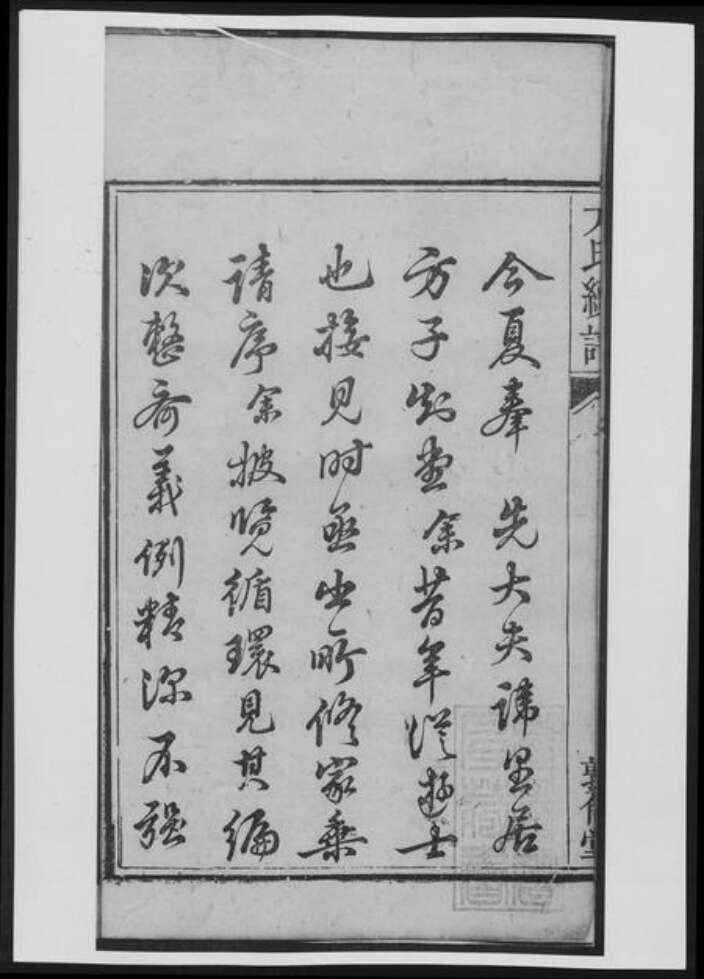 氏
今夏奉 先大夫諱里居
方子余昔年從遊士
也接見時亟出所修家乘
請序余披覽循環見其編
次整齊義例精深不強